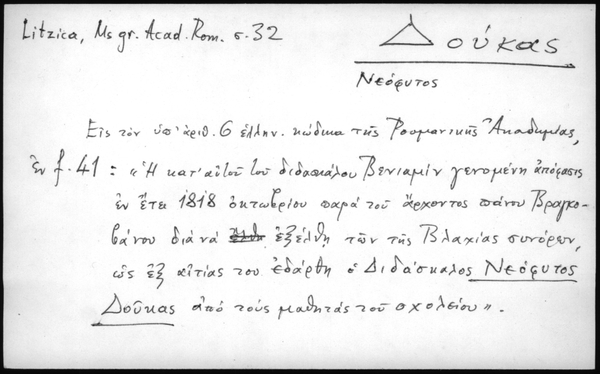 Litzica, Ms gr. Acad. Rom. σ. 32
Δούκας
Νεόφυτος
Εἰς τὸν ὑπ' ἀριθ. 6 ἑλλην. κώδικα τῆς Ρουμανικῆς Ἀκαδημίας,
ἐν f. 41 : «Ἡ κατ' αὐτοῦ τοῦ διδασκάλου Βενιαμὶν γενομένη ἀπόφασις
ἐν ἔτει 1818 ὀκτωβρίου παρὰ τοῦ ἄρχοντος πάνου Βραγκο-
βάνου διὰ νὰ ἐξέλθῃ τῶν τῆς Βλαχίας συνόρων,
ὡς ἐξ αἰτίας του ἐδάρθη ὁ Διδάσκαλος Νεόφυτος
Δούκας ἀπὸ τοὺς μαθητὰς τοῦ σχολείου».